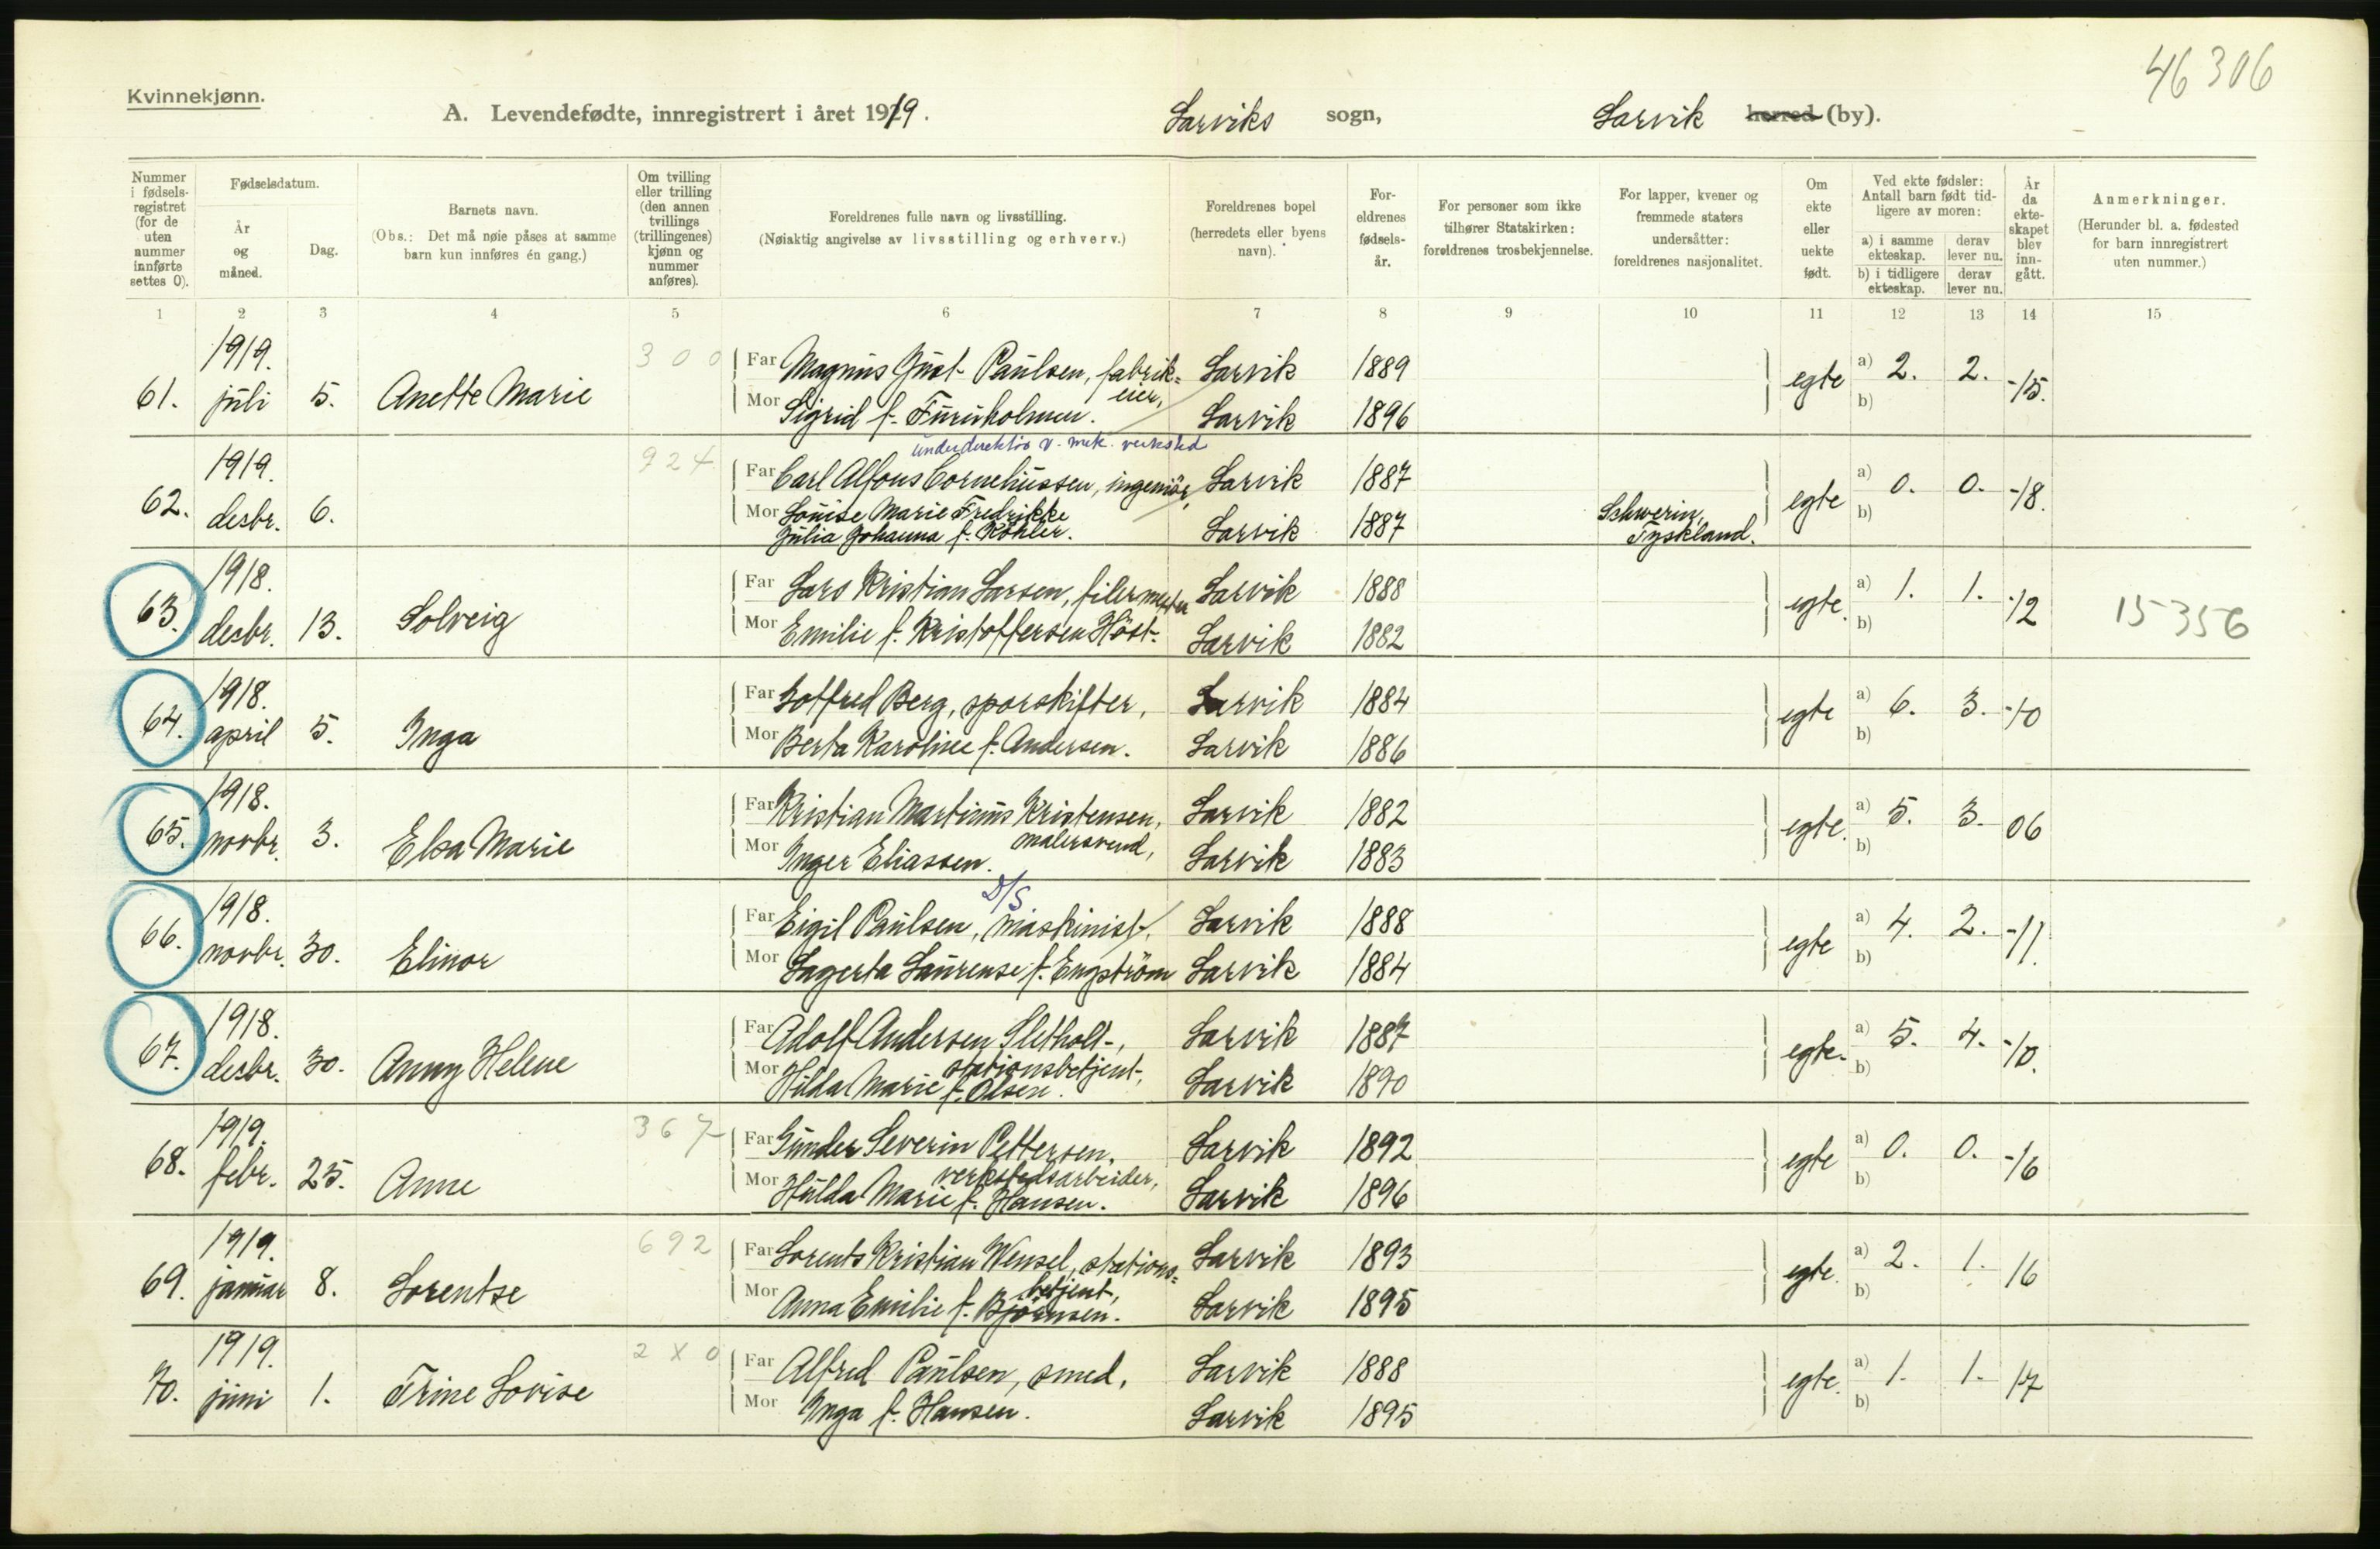 46 306
Kvinnekjønn.
A. Levendefødte, innregistrert i året 1919. Larviks sogn, Larvik herred (by).
Nummer i fødselsregistret (for de uten nummer innførte settes 0).
Fødselsdatum.
År og måned.
Dag.
Barnets navn.
(Obs.: Det må nøie påses at samme barn kun innføres én gang.)
Om tvilling eller trilling (den annen tvillings (trillingenes) kjønn og nummer anføres).
Foreldrenes fulle navn og livsstilling.
(Nøiaktig angivelse av livsstilling og erhverv.)
Foreldrenes bopel (herredets eller byens navn).
Foreldrenes fødselsår.
For personer som ikke tilhører Statskirken: foreldrenes trosbekjennelse.
For lapper, kvener og fremmede staters undersåtter: foreldrenes nasjonalitet.
Om ekte eller uekte født.
Ved ekte fødsler: Antall barn født tidligere av moren:
a) i samme ekteskap. derav lever nu.
b) i tidligere ekteskap. derav lever nu.
År da ekteskapet blev inngått.
Anmerkninger.
(Herunder bl. a. fødested for barn innregistrert uten nummer.)
1 2 3 4 5 6 7 8 9 10 11 12 13 14 15
61. 1919. juli 5. Anette Marie 300
Far Magnus Gust. Paulsen, fabrik= eier, Larvik 1889 egte a) 2. 2. -15.
Mor Sigrid f. Furuholmen. Larvik 1896 b)
underdirektør v. mek. verksted
62. 1919. desbr. 6. 924
Far Carl Alfons Corneliussen, ingeniør, Larvik 1887 egte a) 0. 0. -18.
Mor Louise Marie Fredrikke Julia Johanna f. Köhler. Larvik 1887 Schwerin, Tyskland. b)
63. 1918. desbr. 13. Solveig
Far Lars Kristian Larsen, filermester Larvik 1888 egte. a) 1. 1. -12 15356
Mor Emilie f. Kristoffersen Höst. Larvik 1882 b)
64. 1918. april 5. Inga
Far Gotfred Berg, sporskifter, Larvik 1884 egte a) 6. 3. -10
Mor Berta Karoline f. Andersen. Larvik 1886 b)
65. 1918. novbr. 3. Elsa Marie
Far Kristian Martinius Kristensen, malersvend, Larvik 1882 egte. a) 5. 3. 06
Mor Inger Eliassen. Larvik 1883 b)
D/S
66. 1918. novbr. 30. Elinor
Far Eigil Paulsen, maskinist, Larvik 1888 egte a) 4. 2. -11.
Mor Lagerta Laurense f. Engström Larvik 1884 b)
67. 1918. desbr. 30. Anny Helene
Far Adolf Andersen Sletholt, stationsbetjent, Larvik 1887 egte. a) 5. 4. -10.
Mor Hilda Marie f. Olsen. Larvik 1890 b)
68. 1919. febr. 25. Anne 367
Far Gunder Severin Pettersen, verkstedsarbeider, Larvik 1892 egte a) 0. 0. -16
Mor Hulda Marie f. Hansen. Larvik 1896 b)
69. 1919. januar 8. Lorentse 692
Far Lorents Kristian Wensel, stations= betjent, Larvik 1893 egte. a) 2. 1. 16
Mor Anna Emilie f. Björnsen. Larvik 1895 b)
70. 1919. juni 1. Trine Lovise 2 X 0
Far Alfred Paulsen, smed, Larvik 1888 egte. a) 1. 1. 17
Mor Inga f. Hansen. Larvik 1895 b)